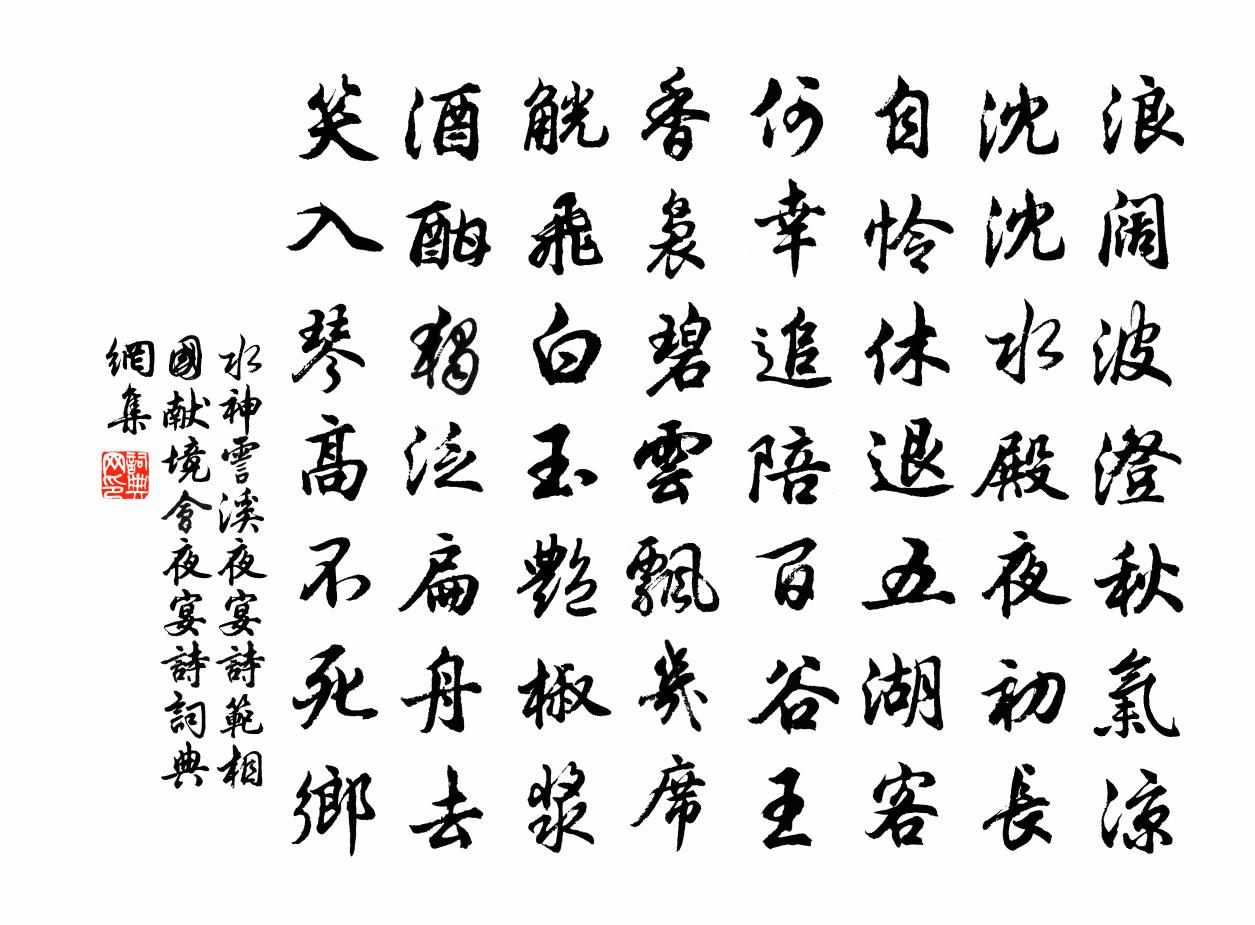 浪闊波澄秋氣涼
沈沈水殿夜初長
自憐休退五湖客
何幸追陪百谷王
香裊碧雲飄幾席
觥飛白玉艷椒漿
酒酣獨泛扁舟去
笑入琴高不死鄉
水神霅溪夜宴詩範相
國献境會夜宴詩詞典
網集
詞典
网印